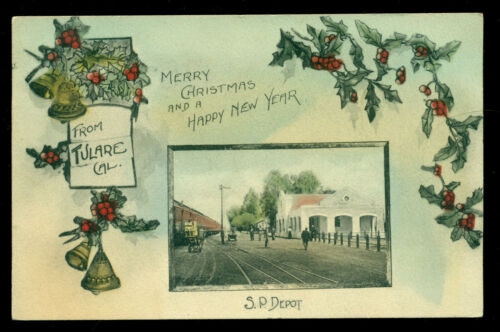 FROM
TULARE
CAL.
MERRY
CHRISTMAS
AND A
HAPPY NEW YEAR
S.P. DEPOT